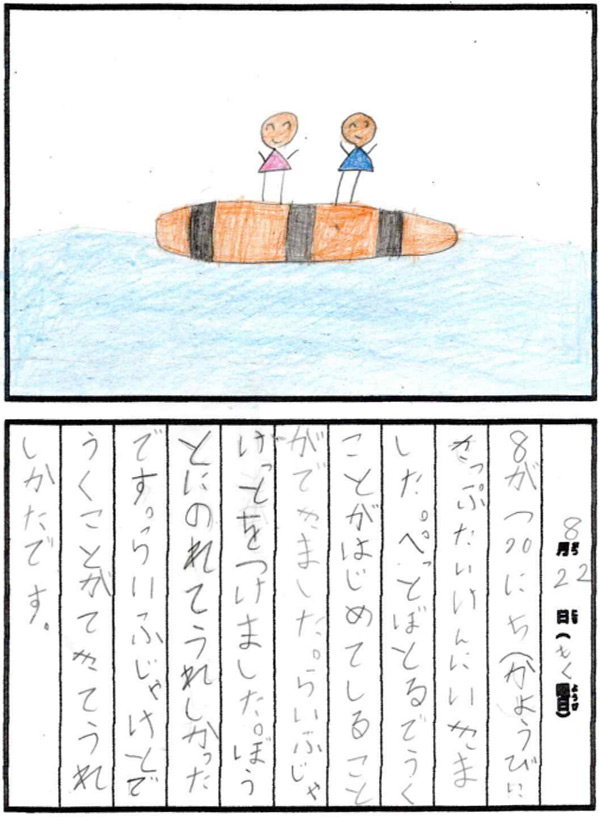 8月22日(もく曜日)
8がつ20にち(かようびに
さっぷたいけんにいきま
した。ぺっとぼとるでうく
ことがはじめてしること
ができました。らいふじゃ
けっとをつけました。ぼう
とにのれてうれしかった
です。らいふじゃけとで
うくことがてきてうれ
しかたです。